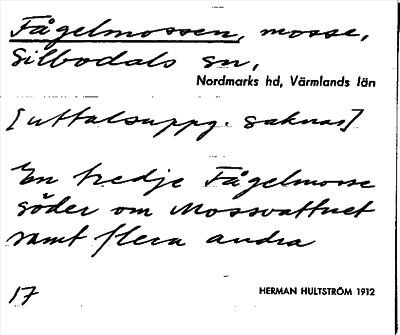 Fågelmossen, mosse,
Silbodals sn,
Nordmarks hd, Värmlands län
[uttalsuppg. saknas]
En tredje Fågelmosse
söder om Mossvattnet
samt flera andra
17
HERMAN HULTSTRÖM 1912